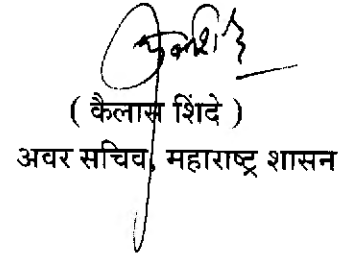 ( कैलास शिंदे )
अवर सचिव, महाराष्ट्र शासन